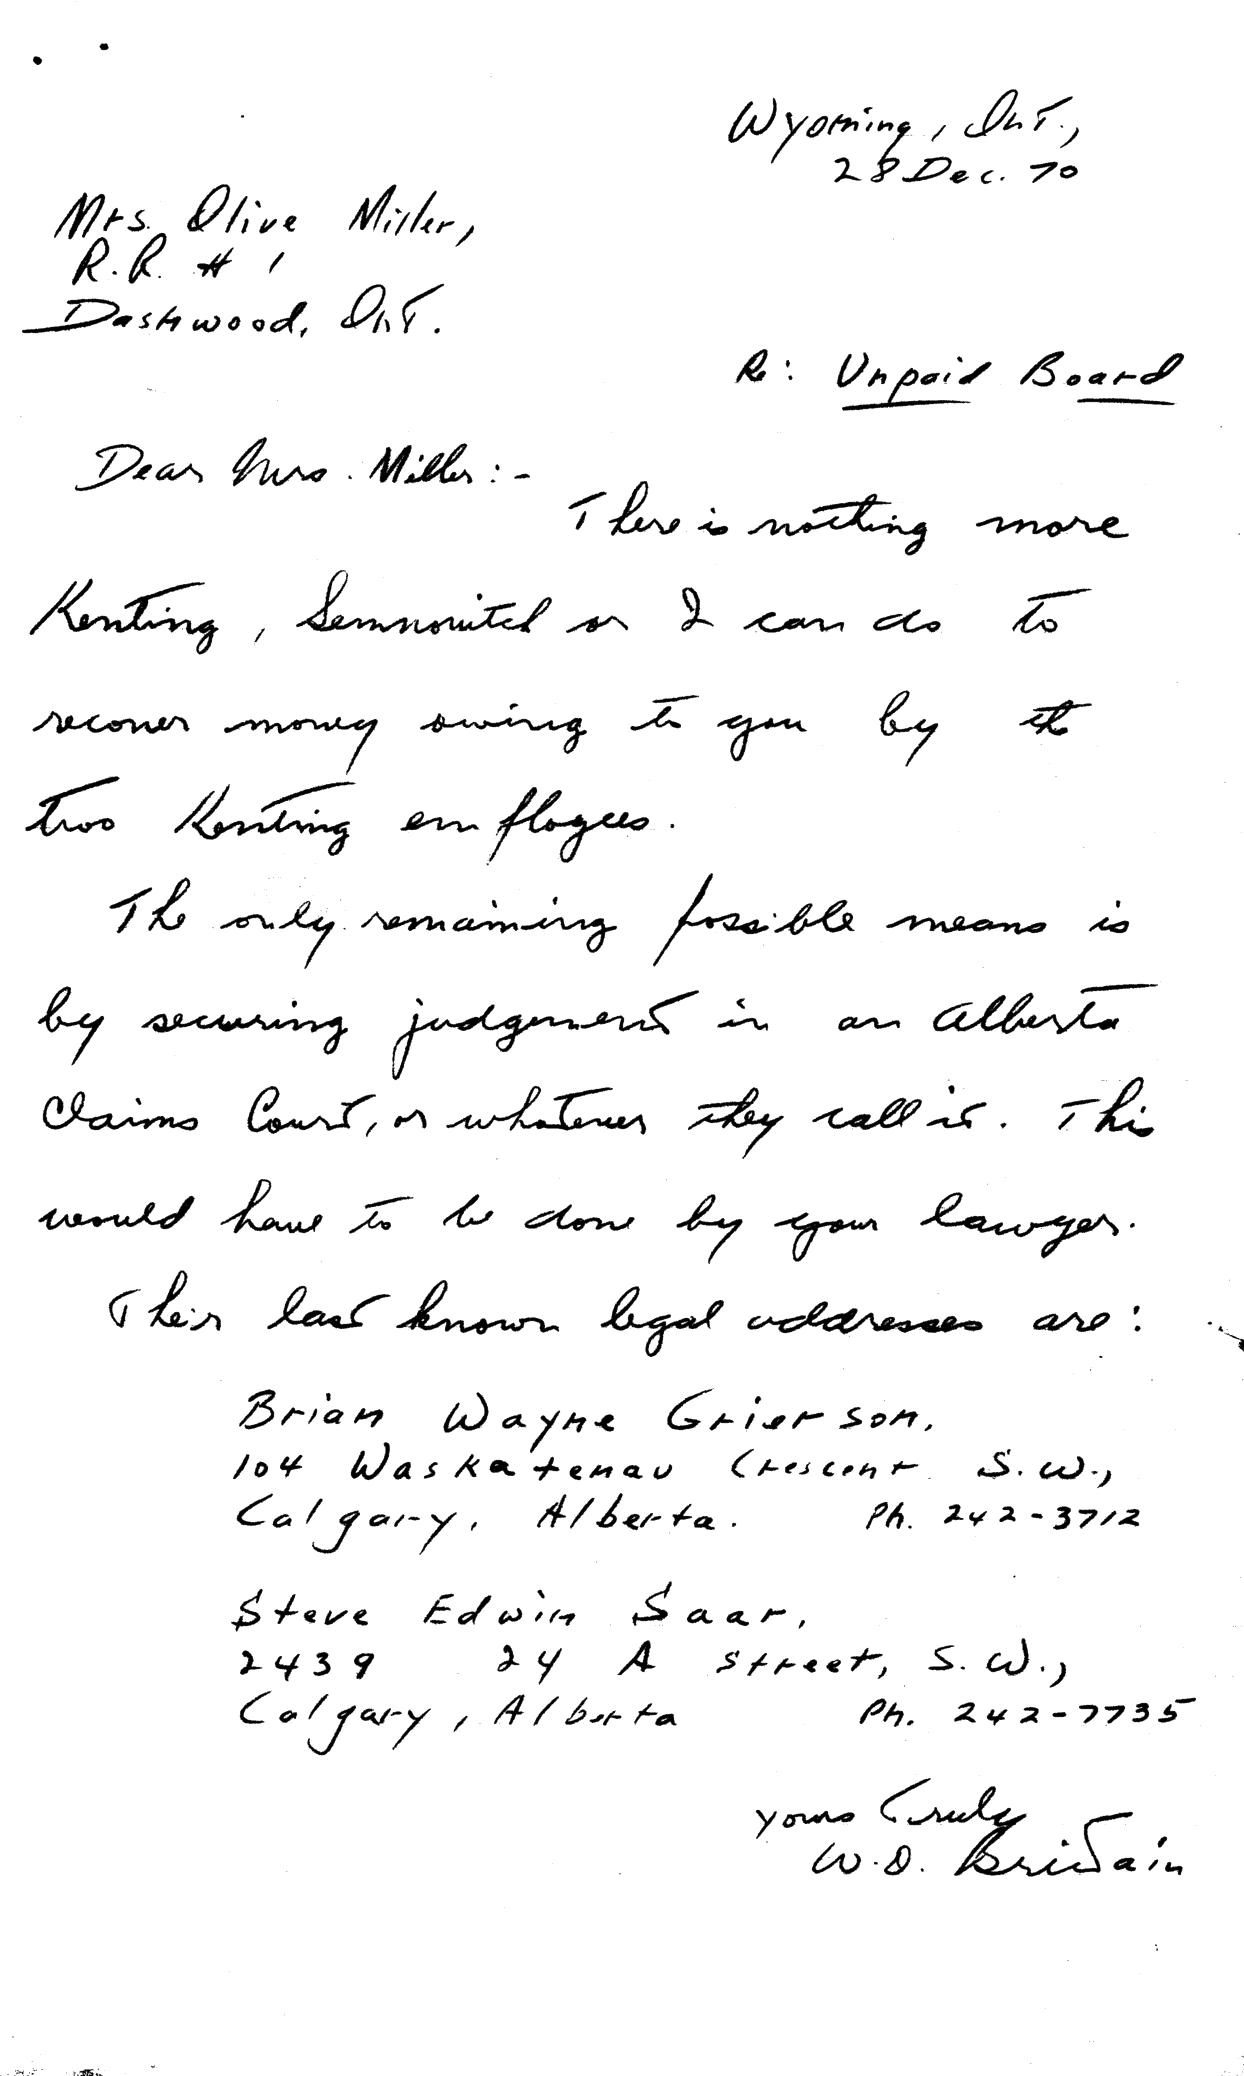 Wyoming, Ont.,
28 Dec. 70
Mrs. Olive Miller,
R.R. # 1
Dashwood, Ont.
Re: Unpaid Board
Dear Mrs. Miller:-
There is nothing more
Kenting, or I can do to
recover money owing to you by the
two Kenting employees.
The only remaining possible means is
by securing judgement in an Alberta
Claims Court, or whatever they call it. This
would have to be done by your lawyer.
Their last known legal addresses are:
Brian Wayne Grierson,
104 Waskatenau Crescent S.W.,
Calgary, Alberta. Ph. 242-3712
Steve Edwin Saar,
2439 24 A Street, S.W.,
Calgary, Alberta Ph. 242-7735
Yours Truly
W.D. Britain